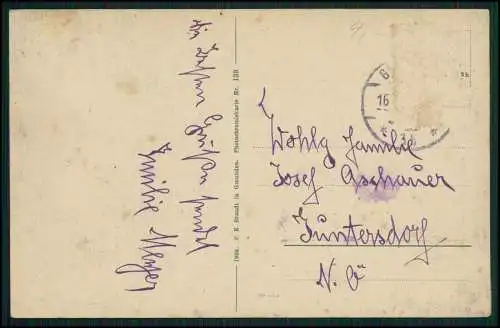 die besten Grüße sendet
Familie Mayer
Phot. F. E. Brandt in Gmunden. Photochromiekarte Nr. 139
16
Wohlg Familie
Josef Aschauer
Juntersdorf
N. Ö